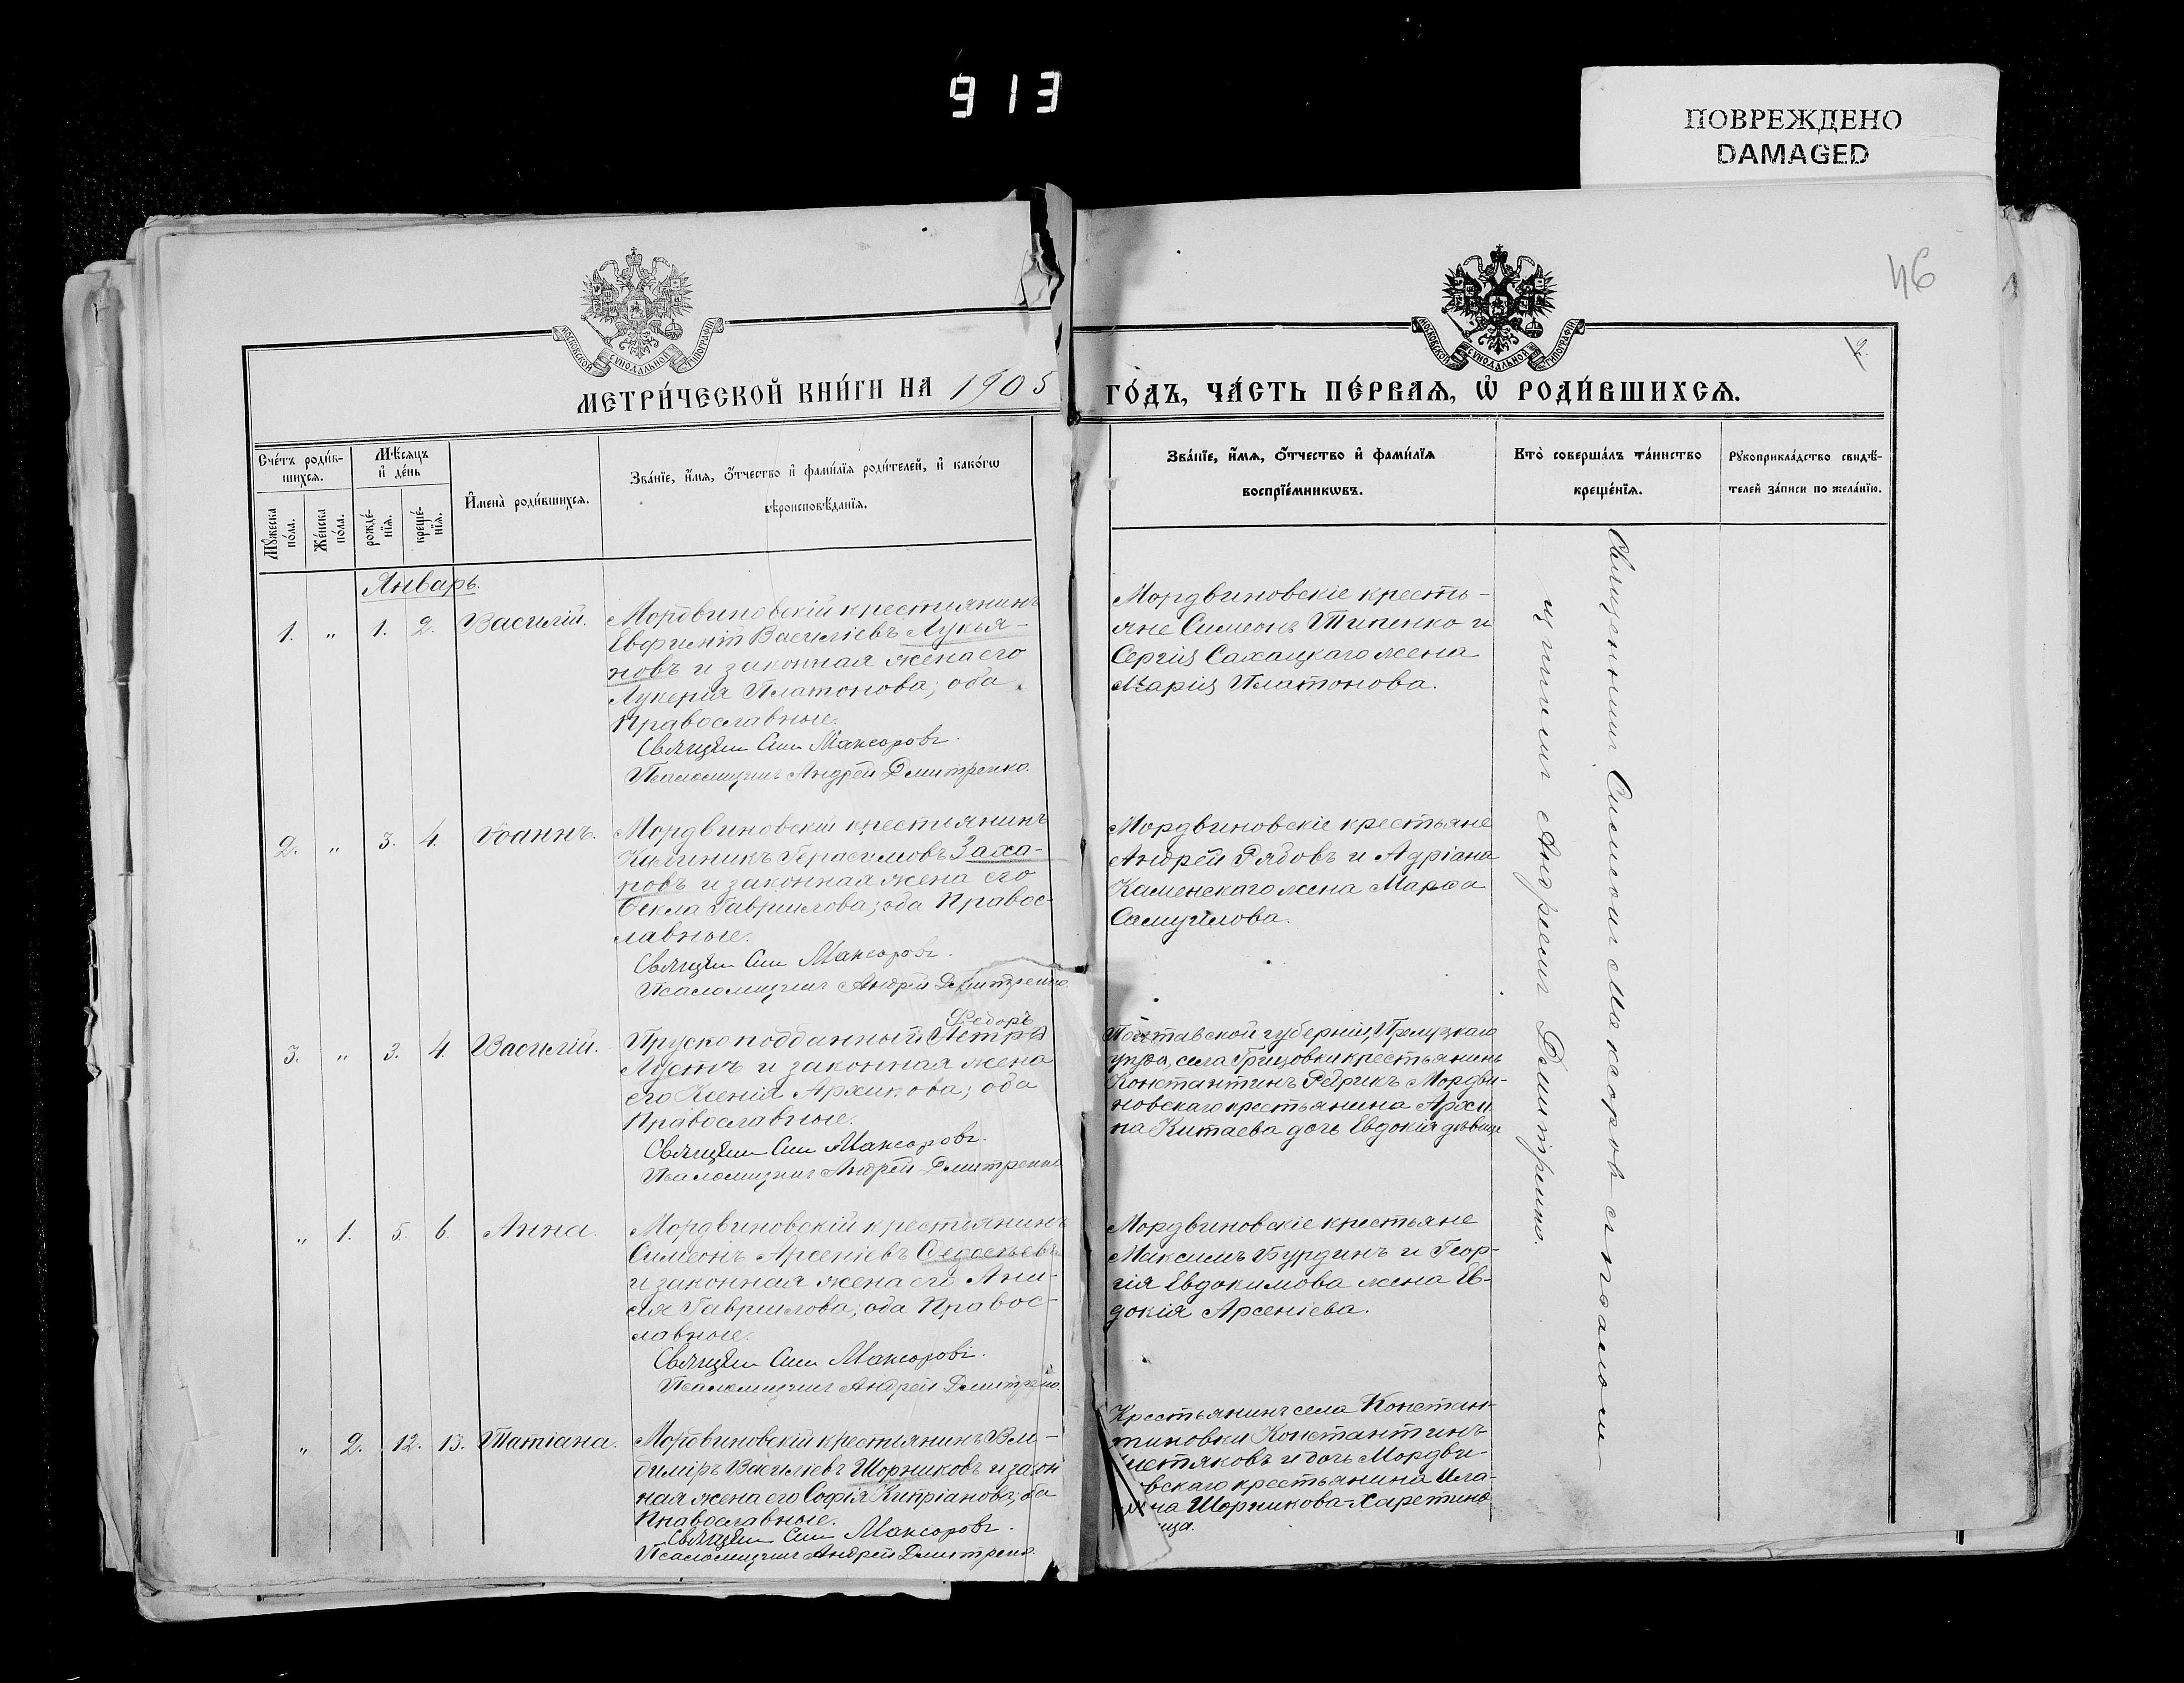 913
ПОВРЕЖДЕНО
DAMAGED
46
2.
МОСКОВСКОЙ СѴНОДАЛЬНОЙ ТИПОГРАФІИ
МОСКОВСКОЙ СѴНОДАЛЬНОЙ ТИПОГРАФІИ
МЕТРИ́ЧЕСКОЙ КНИ́ГИ НА 1905
ГО́ДЪ, ЧА́СТЬ ПЕ́РВАѦ, Ѡ҆ РОДИ́ВШИХСѦ.
Сче́тъ роди́в-
шихсѧ.
Мꙋ́жеска
по́ла.
Же́нска
по́ла.
Мѣ́сѧцъ
и҆ де́нь
рожде́-
нїѧ.
креще́-
нїѧ.
И҆мена̀ роди́вшихсѧ.
Зва́нїе, и҆́мѧ, ѻ҆́тчество и҆ фами́лїѧ роди́телей, и҆ како́гѡ
вѣроисповѣ́данїѧ.
Зва́нїе, и҆́мѧ, ѻ҆́тчество и҆ фами́лїѧ
воспрїе́мникѡвъ.
Кто̀ соверша́лъ та́инство
креще́нїѧ.
Рꙋкоприкла́дство свидѣ́-
телей за́писи по жела́нїю.
Январь.
1. " 1. 2. Василій.
Мордвиновскій крестьянинъ
Евфимій Василіевъ Лукья-
новъ и законная жена его
Лукерія Платонова; оба
Православные.
Священ. Сим. Максоровъ.
Псаломщикъ Андрей Дмитренко.
Мордвиновскіе кресть-
яне Симеонъ Типенко и
Сергія Сахацкаго жена
Марія Платонова.
2. " 3. 4. Іоаннъ.
Мордвиновскій крестьянинъ
Калиникъ Герасимовъ Заха-
ровъ и законная жена его
Ѳекла Гавриилова; оба Правос-
лавные.
Священ. Сим. Максоровъ.
Псаломщикъ Андрей Дмитренко
Мордвиновскіе крестьяне
Андрей Рядовъ и Адріана
Каменскаго жена Марѳа
Самуилова.
3. " 3. 4. Василій.
Ѳедоръ
Прускоподданный Петръ
Лустъ и законная жена
его Ксенія Архипова; оба
Православные.
Священ. Сим. Максоровъ.
Псаломщикъ Андрей Дмитренко
Полтавской губерніи, Прилуцкаго
уѣзда, села Грицовки крестьянинъ
Константинъ Редрикъ Мордви-
новскаго крестьянина Архи-
па Китаева дочь Евдокія дѣвица
" 1. 5. 6. Анна.
Мордвиновскій крестьянинъ
Симеонъ Арсеніевъ Ѳедосѣевъ
и законная жена его Ани-
сія Гавриилова; оба Правос-
лавные.
Священ. Сим. Максоровъ.
Псаломщикъ Андрей Дмитренко.
Мордвиновскіе крестьяне
Максимъ Бурдинъ и Геор-
гія Евдокимова жена Ев-
докія Арсеніева.
" 2. 12. 13. Татіана.
Мордвиновскій крестьянинъ Вла-
диміръ Василіевъ Шорниковъ и закон
ная жена его Софія Кипріанова; оба
Православные.
Священ. Сим. Максоровъ.
Псаломщикъ Андрей Дмитренко.
Крестьянинъ села Констан-
тиновки Константинъ
истяковъ и дочь Мордви-
вскаго крестьянина
на Шорникова
ица.
Священникъ Симеонъ Максоровъ съ псаломщ
щикомъ Андреемъ Дмитренко.